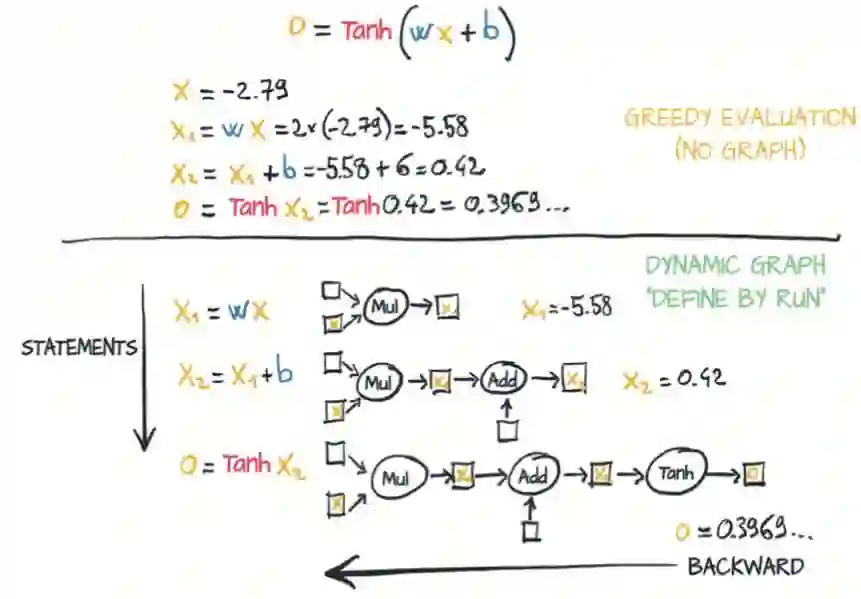 O = Tanh(wx + b)
X = -2.79
X₁ = wX = 2×(-2.79) = -5.58
X₂ = X₁ + b = -5.58 + 6 = 0.42
O = Tanh X₂ = Tanh 0.42 = 0.3969...
GREEDY EVALUATION
(NO GRAPH)
DYNAMIC GRAPH
"DEFINE BY RUN"
STATEMENTS
X₁ = wX
X
Mul
X₁
X₁=-5.58
X₂ = X₁ + b
X
Mul
X₁
Add
X₂
X₂ = 0.42
O = Tanh X₂
X
Mul
X₁
Add
X₂
Tanh
O
O = 0.3969...
BACKWARD